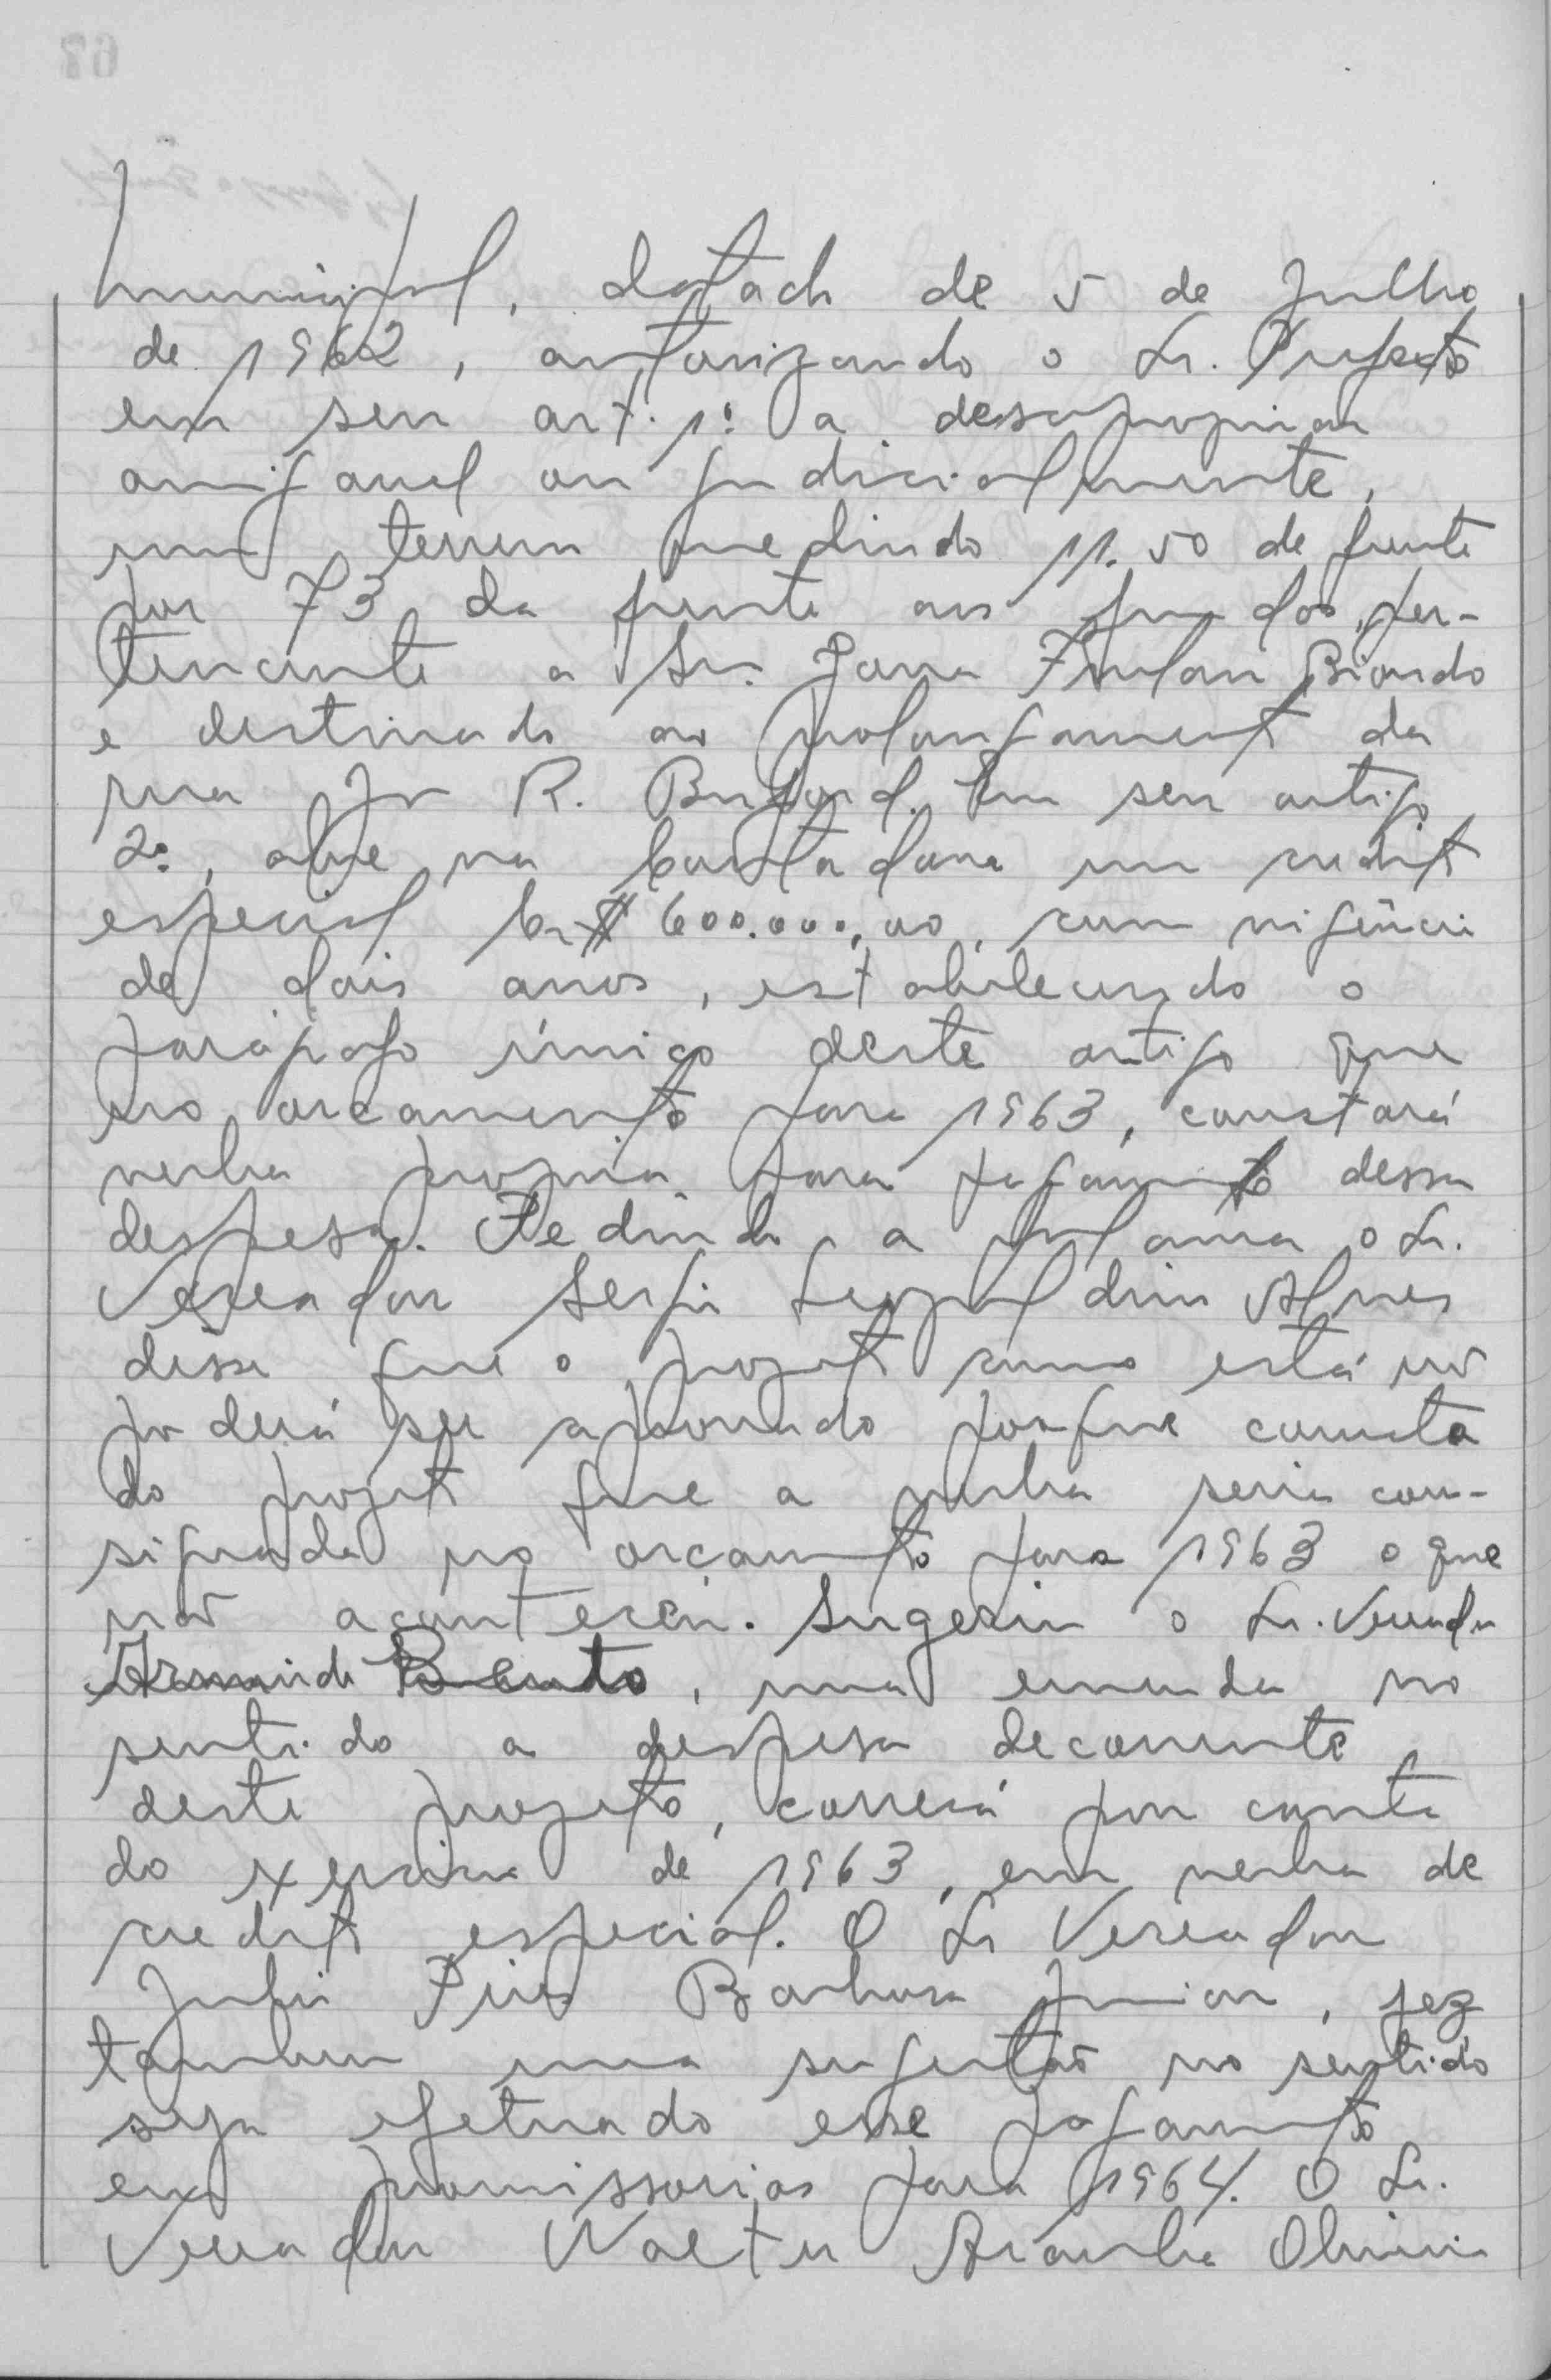 Municipal, datada de 5 de Julho
de 1962, autorizando o Sr. Prefeito
em seu art. 1º a desapropriar
amigavel ou judicialmente,
um terreno medindo 11.50 de frente
por 73 da frente aos fundos, per-
tencente a Sra. Joana Biondo
e destinado ao prolongamento da
rua R. Em seu artigo
2º, abre na Contadoria um credito
especial Cr$ 600.000,00, com vigência
de dois anos, estabelecendo o
parágrafo único deste artigo que
no orcamento para 1963, constará
verba propria para pagamento dessa
despesa. Pedindo a palavra o Sr.
Vereador Sergio Leopoldino Alves
disse que o projeto como está não
poderá ser aprovado porque consta
do projeto que a verba seria con-
signada no orçamento para 1963 o que
não aconteceu. Sugeriu o Sr. Vereador
Armindo Bento, uma emenda no
sentido a despesa decorrente
deste projeto, correrá por conta
do exercicio de 1963, em verba de
credito especial. O Sr Vereador
Julio Pires Barbosa Junior, fez
tambem uma sugestão no sentido
seja efetuado esse pagamento
em promissorias para 1964. O Sr.
Vereador Walter Aranha